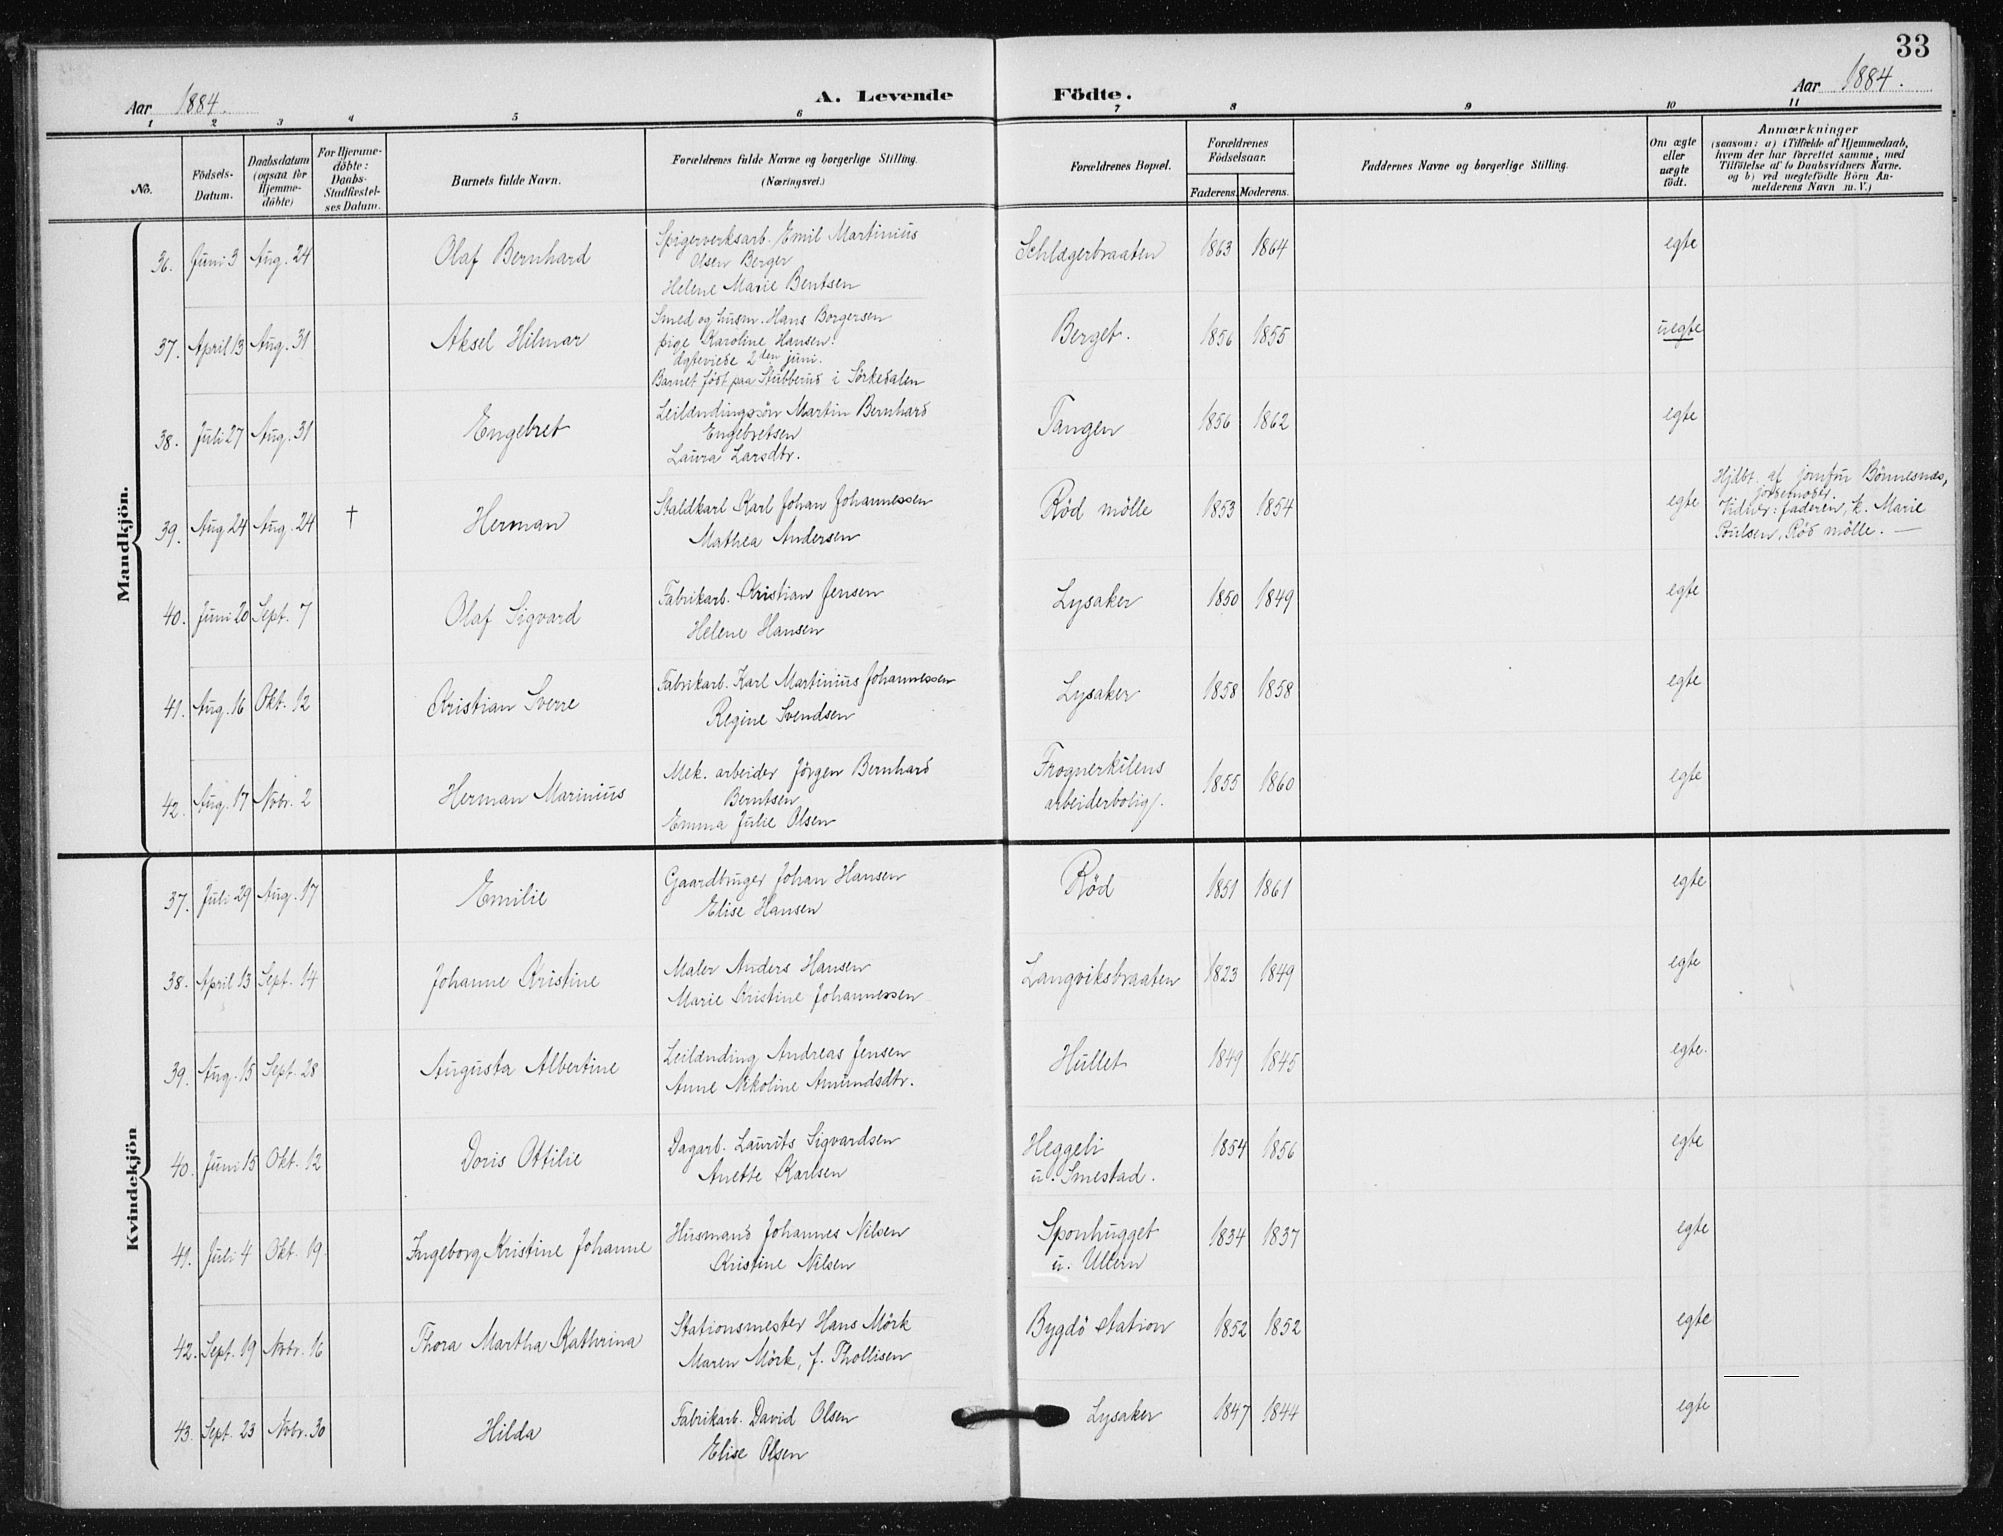 33
Aar 1884. A. Levende Födte. Aar 1884.
1 2 3 4 5 6 7 8 9 10 11
No.
Födsels-
Datum.
Daabsdatum
(ogsaa for
Hjemme-
döbte)
For Hjemme-
döbte:
Daabs-
Stadfæstel-
ses Datum.
Barnets fulde Navn.
Forældrenes fulde Navne og borgerlige Stilling.
(Næringsvei.)
Forældrenes Bopæl.
Forældrenes
Födselsaar.
Faderens. Moderens.
Faddernes Navne og borgerlige Stilling.
Om ægte
eller
uægte
födt.
Anmærkninger
(saasom: a) i Tilfælde af Hjemmedaab,
hvem der har forrettet samme, med
Tilföielse af to Daabsvidners Navne.
og b) ved uægtefödte Börn An-
melderens Navn m. V.)
Mandkjön.
36. Juni 3 Aug. 24 Olaf Bernhard Spigerverksarb. Emil Martinius Schlægerbraaten 1863 1864 egte
Olsen Berger
Helene Marie Bentsen
37. April 13 Aug. 31 Aksel Hilmar Smed og husm. Hans Borgersen Berget. 1856 1855 uegte
pige Karoline Hansen.
ægteviede 2den juni.
Barnet født paa Stubberud i Sörkedalen
38. Juli 27 Aug. 31 Engebret Leilændingssön Martin Bernhard Tangen 1856 1862 egte
Engebretsen
Laura Larsdtr.
39. Aug 24 Aug. 24 † Herman Staldkarl Karl Johan Johannessen Rød mölle 1853 1854 egte
Mathea Andersen
Hjdbt. af jomfru Bönnesnæs,
jordemoder
Vidner: faderen, k. Marie
Poulsen, Rød mölle. —
40. Juni 20 Sept. 7 Olaf Sigvard Fabrikarb. Kristian Jensen Lysaker 1850 1849 egte
Helene Hansen
41. Aug. 16 Okt. 12 Kristian Sverre Fabrikarb. Karl Martinius Johannessen Lysaker 1858 1858 egte
Regine Svendsen
42. Aug. 17 Novbr. 2 Herman Marinius Mek. arbeider Jörgen Bernhard Frognerkilens 1855 1860 egte
Berntsen arbeiderbolig.
Emma Julie Olsen
Kvindekjön
37. Juli 29 Aug. 17 Emilie Gaardbruger Johan Hansen Rød 1851 1861 egte
Elise Hansen
38. April 13 Sept. 14 Johanne Kristine Maler Anders Hansen Langviksbraaten 1823 1849 egte
Marie Kristine Johannessen
39. Aug. 15 Sept. 28 Augusta Albertine Leilænding Andreas Jensen Hullet 1849 1845 egte.
Anne Nikoline Amundsdtr.
40. Juni 15 Okt. 12 Doris Ottilie Dagarb. Laurits Sigvardsen Heggeli 1854 1856 egte
Anette Karlsen u. Smestad.
41. Juli 4 Okt. 19. Ingeborg Kristine Johanne Husmand Johannes Nilsen Sponhugget 1834 1837 egte
Kristine Nilsen u. Ullern
42. Sept. 19 Novbr. 16 Thora Martha Kathrina Stationsmester Hans Mörk Bygdö station 1852 1852 egte
Maren Mörk, f. Thollisen
43. Sept. 23 Novbr. 30 Hilda Fabrikarb. David Olsen Lysaker 1847 1844 egte
Elise Olsen